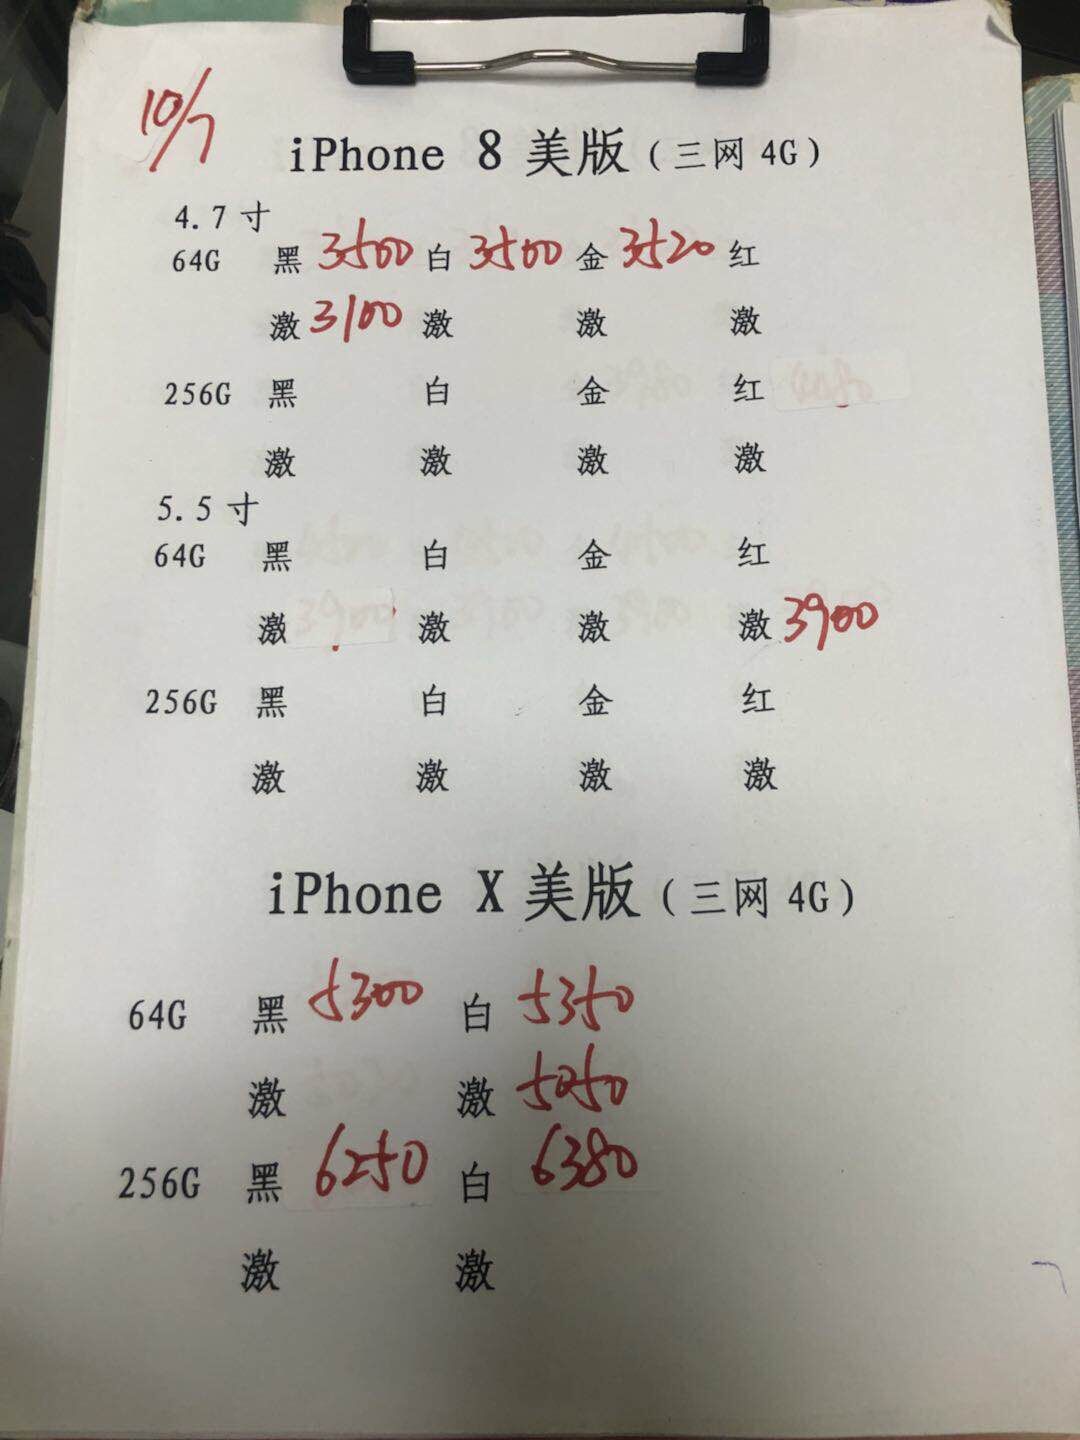 10/7
iPhone 8 美版（三网 4G）
4.7 寸
64G 黑 3500 白 3500 金 3520 红
激 3100 激 激 激
256G 黑 白 金 红
激 激 激 激
5.5 寸
64G 黑 白 金 红
激 激 激 激 3900
256G 黑 白 金 红
激 激 激 激
iPhone X 美版（三网 4G）
64G 黑 5300 白 5350
激 激 5050
256G 黑 6250 白 6380
激 激